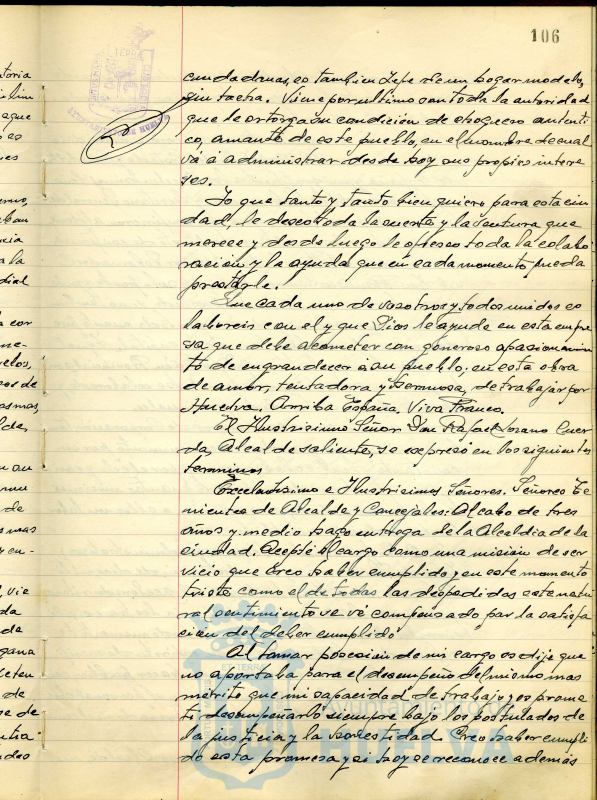 106
ciudadanas, es tambien Jefe de un hogar modelo,
sin tacha. Viene por ultimo con toda la autoridad
que le otorga su condición de choquero autenti
co, amante de este pueblo, en el nombre del cual
vá á administrar desde hoy sus propios intere
ses.
Yo que tanto y tanto bien quiero para esta ciu
dad, le deseo toda la suerte y la ventura que
merece y desde luego le ofrezco toda la colabo
ración y la ayuda que en cada momento pueda
prestarle.
Que cada uno de vosotros y todos unidos co
laboreis con el y que Dios le ayude en esta empre
sa que debe acometer con generoso apasionamien
to de engrandecer á su pueblo; en esta obra
de amor, tentadora y hermosa, de trabajar por
Huelva. Arriba España, Viva Franco.
El Ilustrisimo Señor Don Rafael Lozano Cuer
da, Alcalde saliente, se expresó en los siguientes
terminos
Excelentisimo e Ilustrisimos Señores. Señores Te
nientes de Alcalde y Concejales: Al cabo de tres
años y medio hago entrega de la Alcaldia de la
ciudad. Acepté el cargo como una mision de ser
vicio que creo haber cumplido y en este momento
triste como el de todas las despedidas este natu
ral sentimiento se vé compensado por la satisfa
cion del deber cumplido
Al tomar posesion de mi cargo os dije que
no aportaba para el desempeño del mismo mas
merito que mi capacidad de trabajo y os prome
ti desempeñarlo siempre bajo los postulados de
la justicia y la honestidad. Creo haber cumpli
do esta promesa y si hoy se reconoce además
Ayuntamiento de
HUELVA